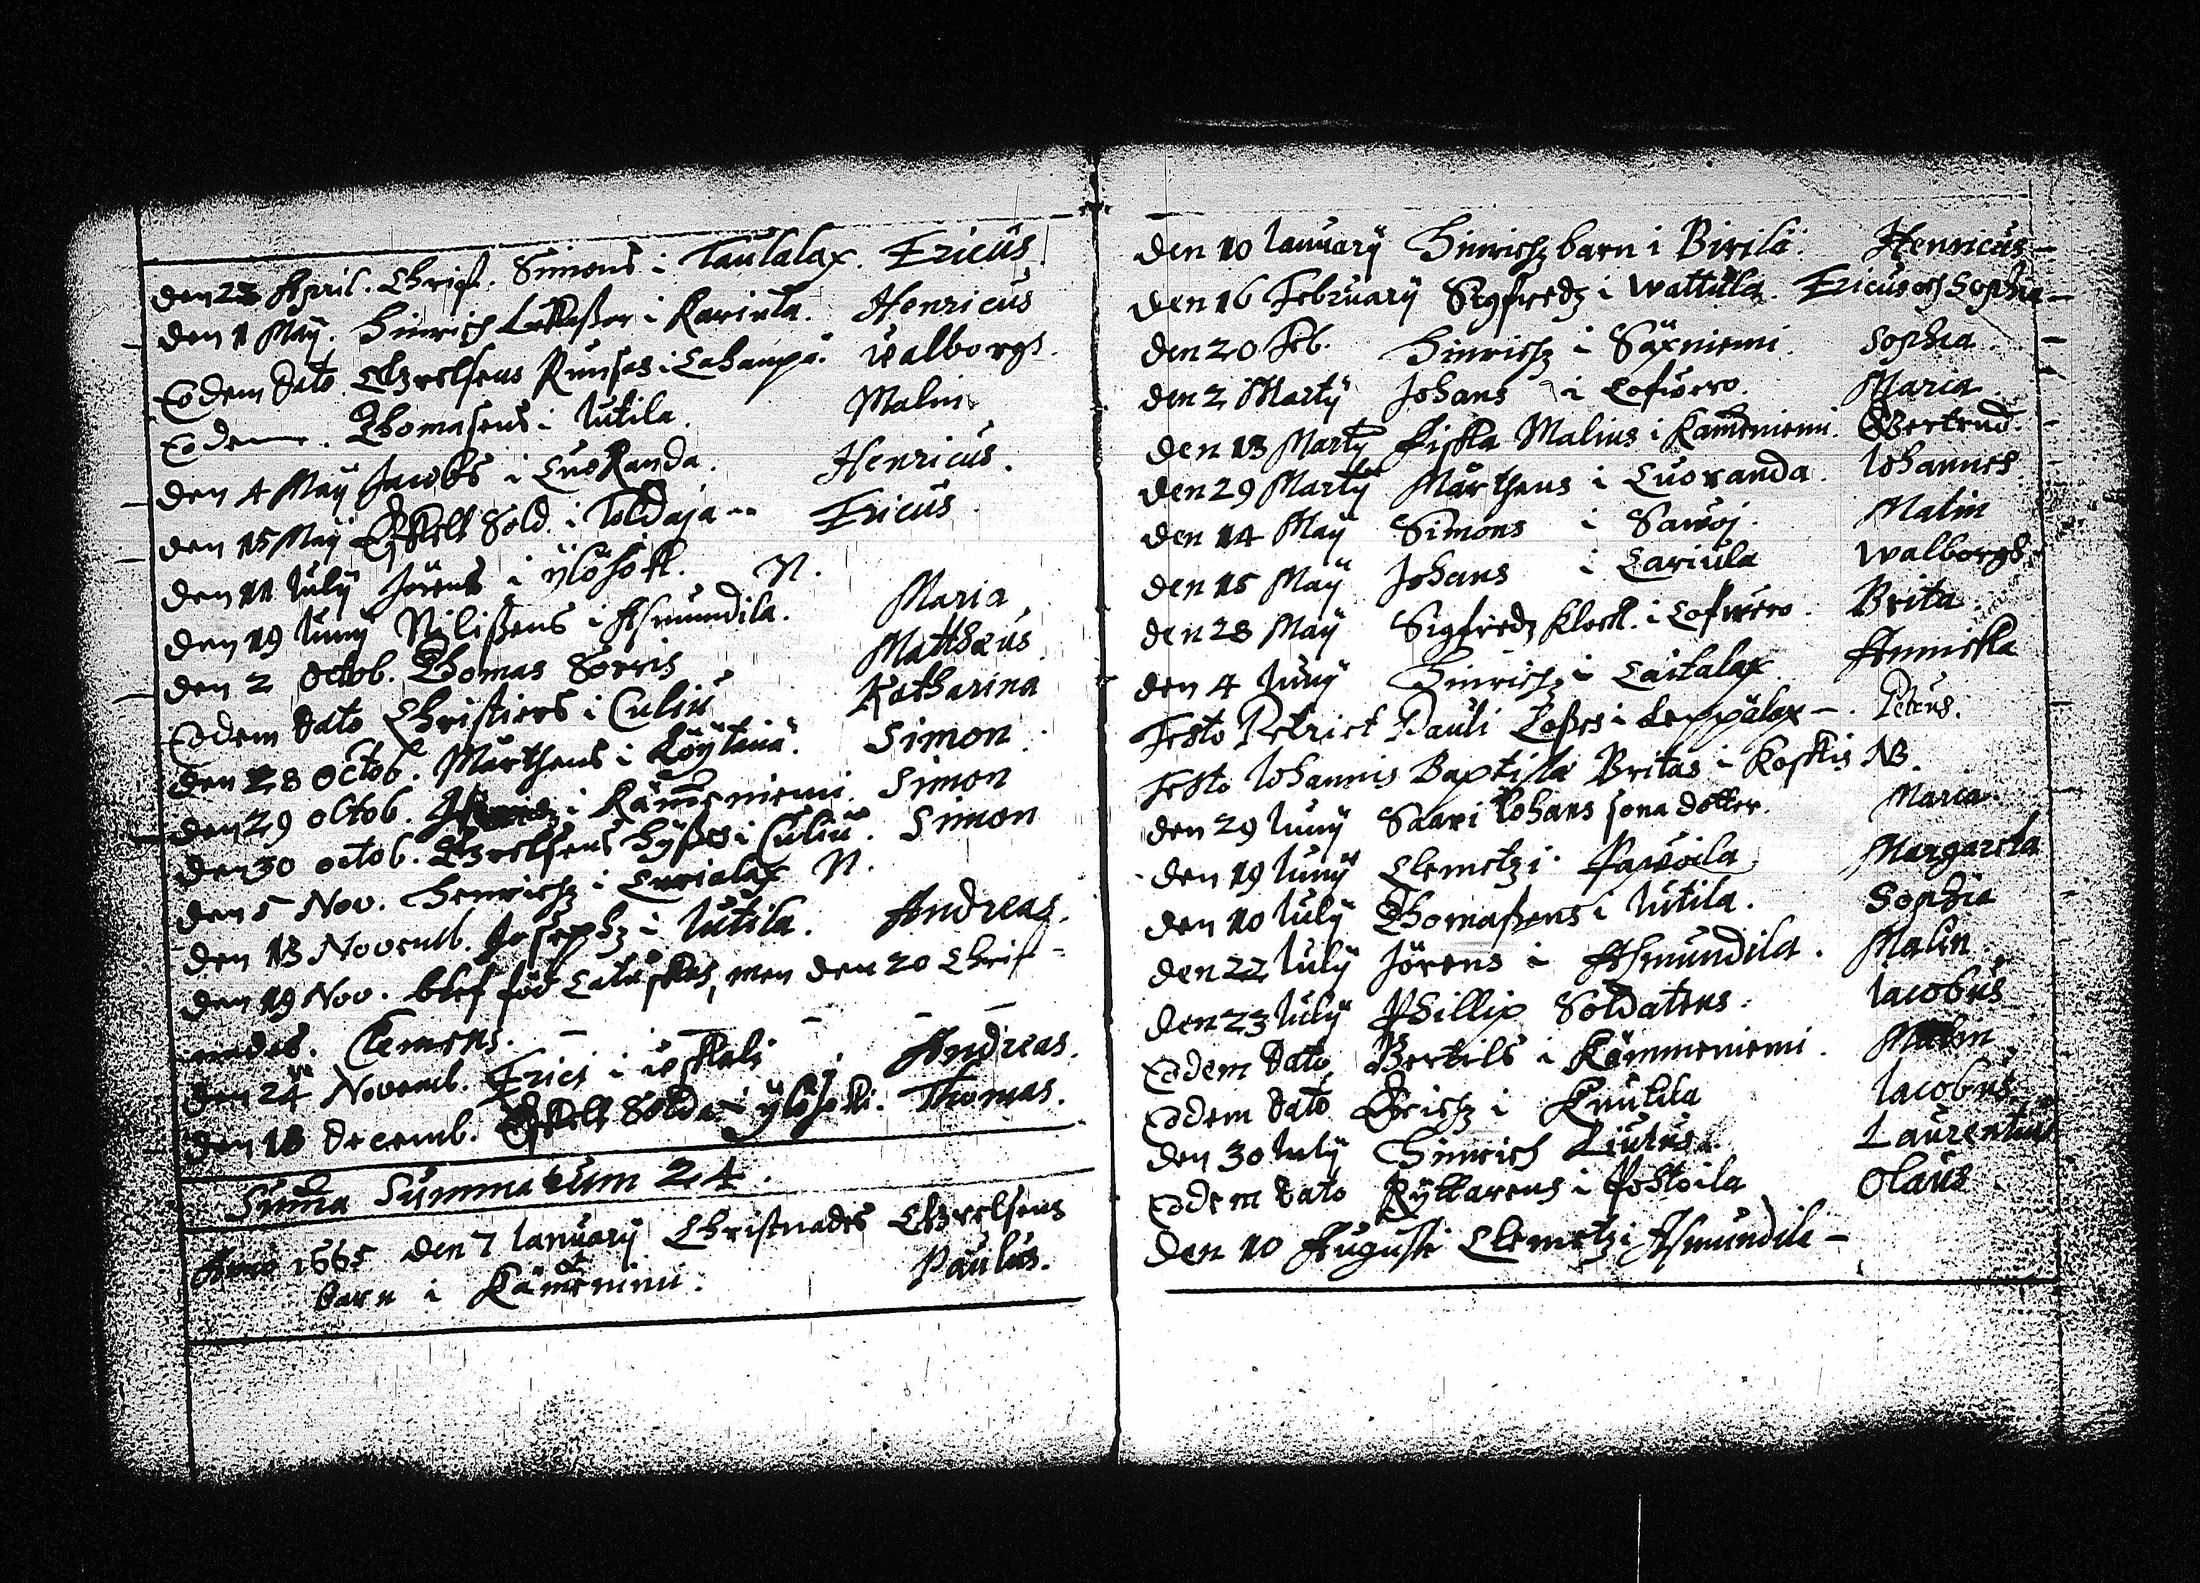 den 23 April. Christ. Simons i Taulalax. Ericus
den 1 Maÿ. Hinrich i Kariula. Henricus
Eodem dato i Lahanpä. Walborgs.
Eodem. Thomasens i Iutila. Malin
den 4 Maÿ Jacobs i Cuokanda. Henricus.
den 15 Maÿ Eskell Sold. i Toldaja Ericus
den 11 Iulÿ Jörens i ÿlösökl. N.
den 19 Iunÿ Nilißens i Asmundila. Maria
den 2 Octob. Thomas Sorris Matthæus
Eodem dato Christiers i Culiu Katharina
den 28 Octob. Mårthens i Löÿtiniä. Simon.
den 29 Octob. i Kämmeniemi. Simon
den 30 Octob. i Culiu. Simon
den 5 Nov. Henrichz i Curialax N.
den 13 Novemb. Josephz i Iutila. Andreas.
den 19 Nov. blef föd, men den 20 Christ-
nades. Clemens.
den 24 Novemb. Erics i Andreas.
den 18 Decemb. Eskell Solda i ÿlösokl. Thomas.
Suma Summarum 24.
Anno 1665 den 7 Ianuarÿ Christnades
barn i Kämenimi. Paulus.
den 10 Ianuarÿ Hinrichz barn i Birila. Henricus
den 16 Februarÿ Sigfredz i Wattula. Ericus och Sophia
den 20 Feb. Hinrichz i Säxniemi. Sophia
den 2 Martÿ Johans i Lofwero. Maria
den 13 Martÿ Malins i Kämeniemi. Gertrud.
den 29 Martÿ Mårthens i Cuoranda. Iohannes.
den 14 Maÿ Simons i Sawoj. Malin
den 15 Maÿ Johans i Cariula Walborgs
den 28 Maÿ Sigfredz Klock. i Lofwero. Brita
den 4 Iunÿ Hinrichz i Laitalax Annicka
Festo Petri et Pauli i Leppälax. Petrus.
Festo Iohannis Baptistæ Britas i Koskis NB.
den 29 Iunÿ Saari Iohans sona dotter. Maria
den 19 Iunÿ Clemetz i Pawoila Margareta
den 10 Iulÿ Thomaßens i Iutila. Sophia
den 22 Iulÿ Jörens i Asmundila. Malin
den 23 Iulÿ Phillip Soldatens. Iacobus
Eodem dato Bertils i Kämmeniemi. Malin
Eodem dato Erichz i Knutila Iacobus
den 30 Iulÿ Hinrich Laurentius
Eodem dato i Postoila Olaus
den 10 Augusti Clemetz i Asmundila